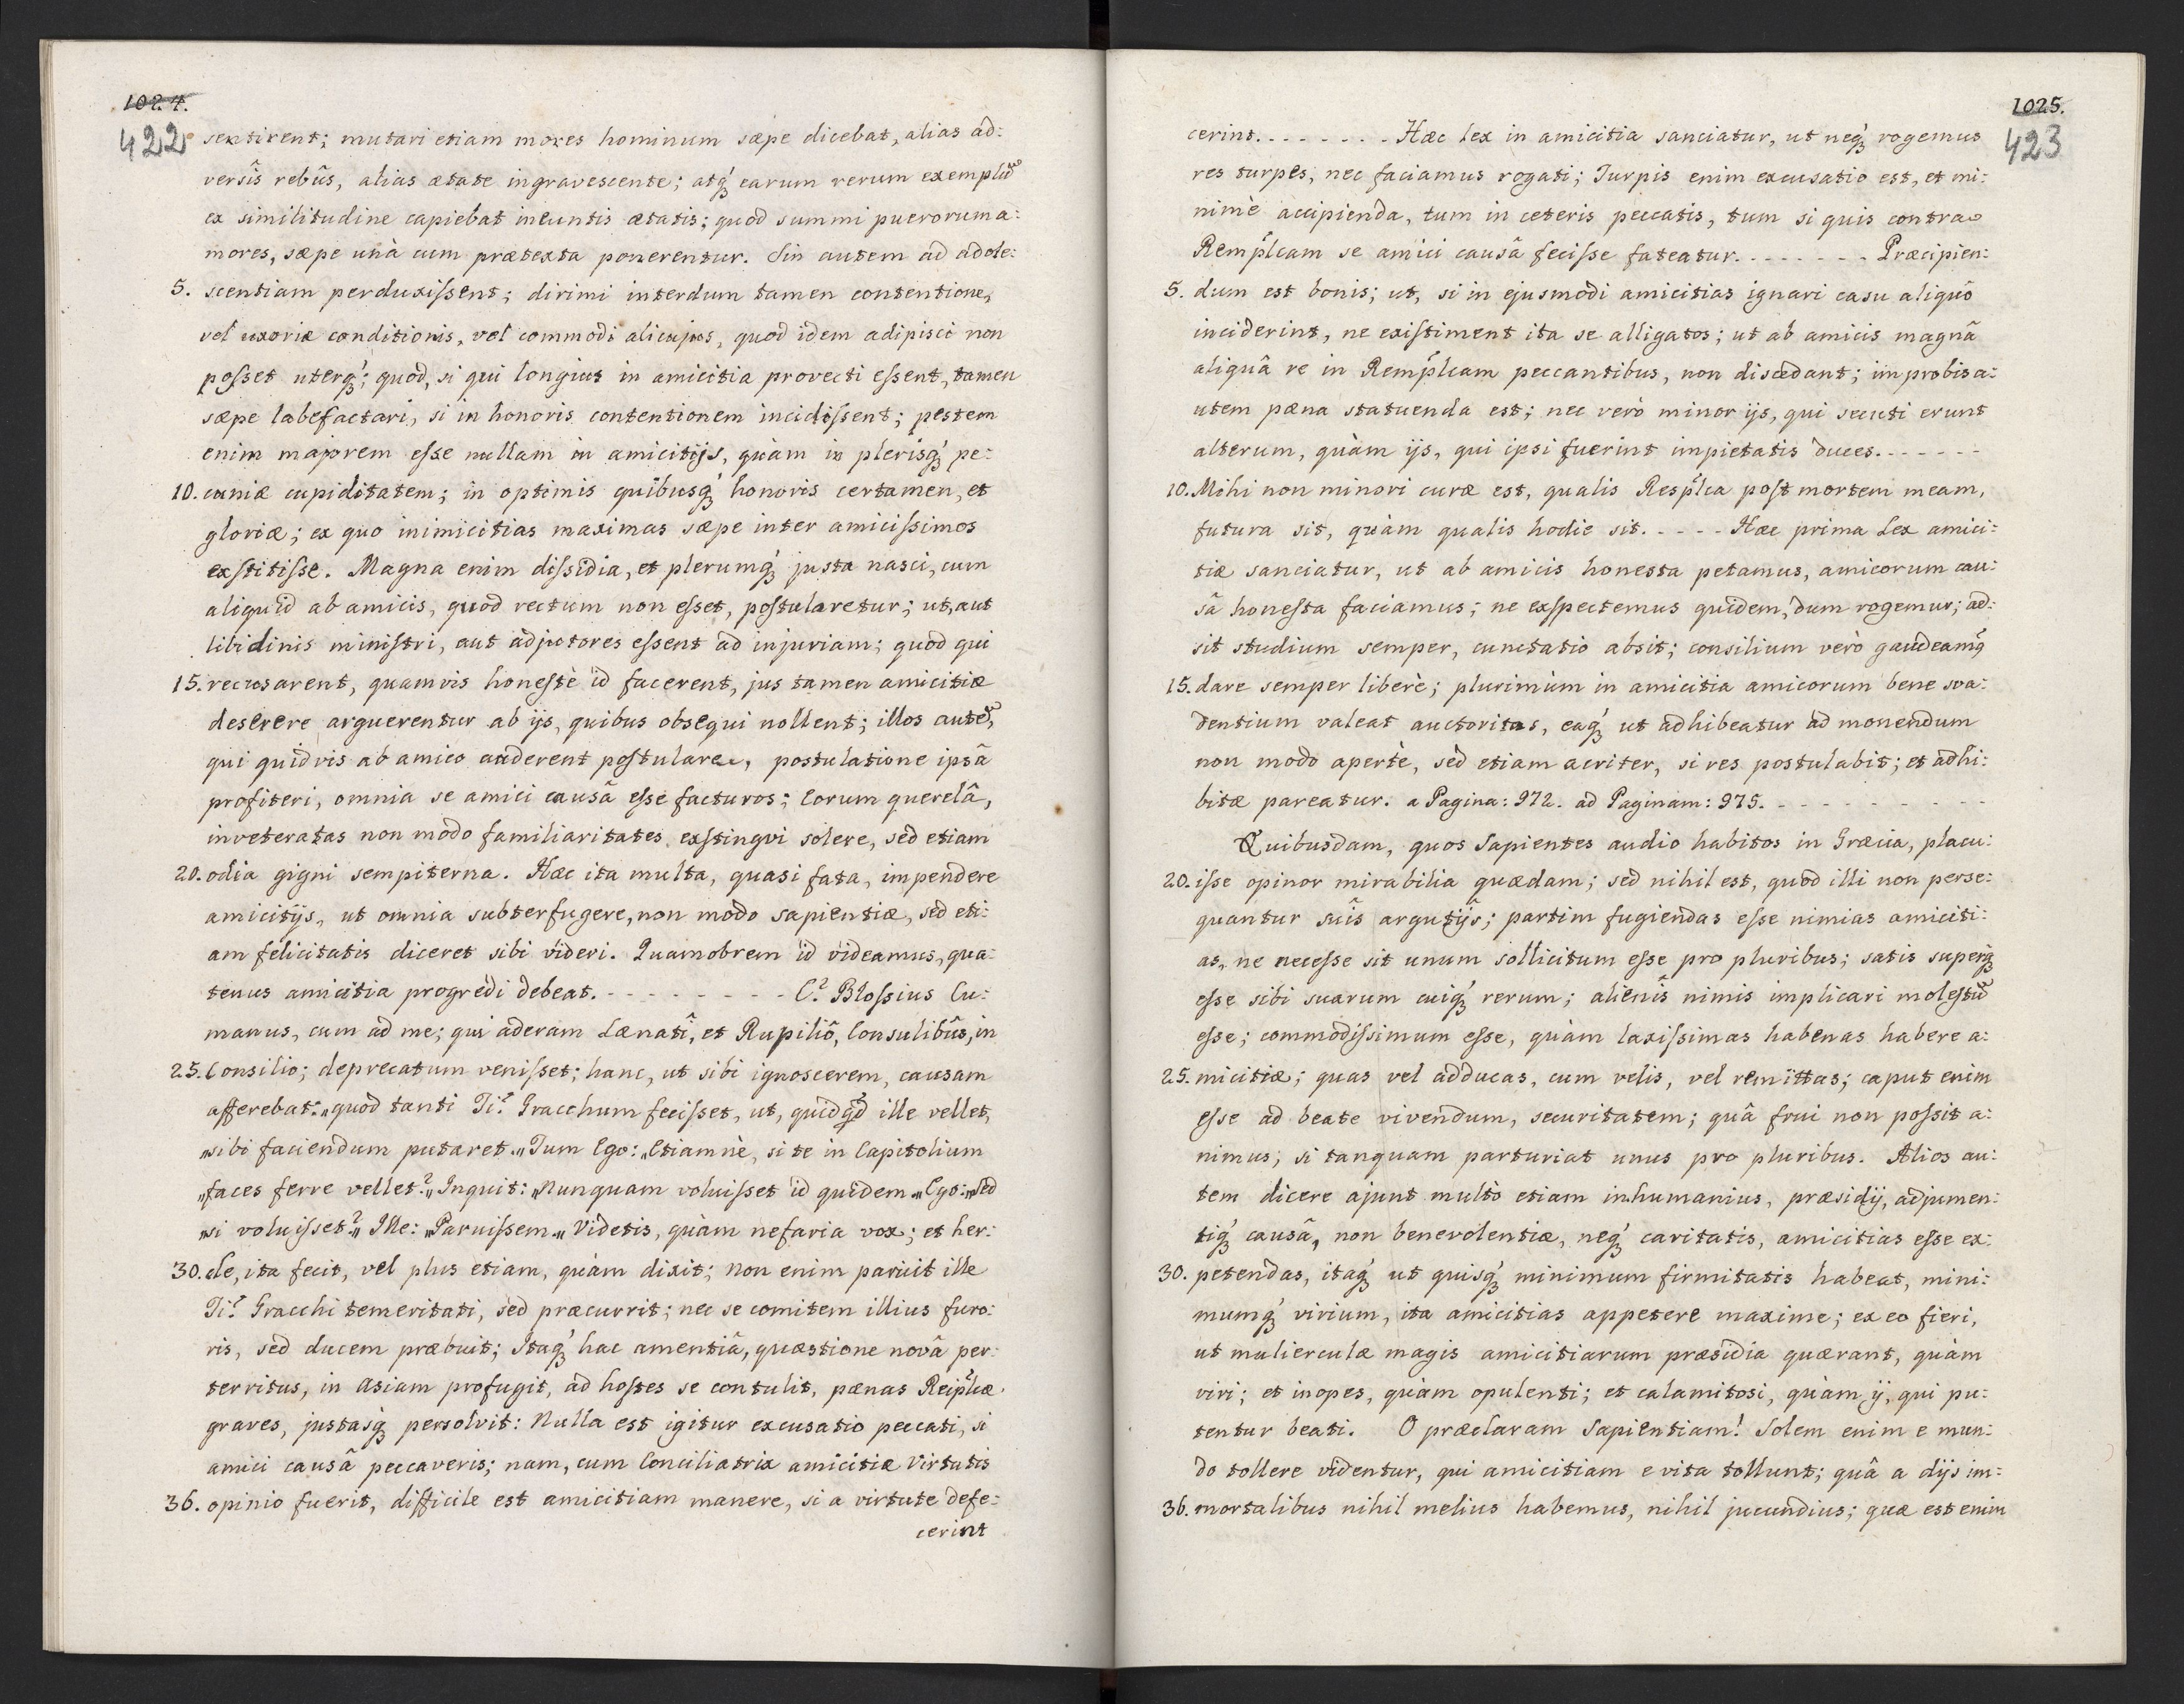 1024.
422
sentirent; mutari etiam mores hominum sæpe dicebat, alias ad:
versîs rebûs, alias ætate ingravescente; atq́ earum rerum exemplũ
ex similitudine capiebat ineuntis ætatis; quod summi puerorum a:
mores, sæpe unà cum prætexta ponerentur. Sin autem ad adole:
5. scentiam perduxiſsent; dirimi interdum tamen contentione,
vel uxoriæ conditionis, vel commodi alicujus, quod idem adipisci non
poſset uterq́; quod, si qui longius in amicitia provecti eſsent, tamen
sæpe labefactari, si in honoris contentionem incidiſsent; pestem
enim majorem eſse nullam in amicitijs, quàm in plerisq́ pe:
10. cuniæ cupiditatem; in optimis quibusq́ honoris certamen, et
gloriæ; ex quo inimicitias maximas sæpe inter amiciſsimos
exſtitiſse. Magna enim diſsidia, et plerumq́ justa nasci, cum
aliquid ab amicis, quod rectum non eſset, poſtularetur; ut, aut
libidinis miniſtri, aut adjutores eſsent ad injuriam; quod qui
15. recusarent, quamvis honeſtè id facerent, jus tamen amicitiæ
deserere arguerentur ab ijs, quibus obsequi nollent; illos autẽ,
qui quidvis ab amico auderent poſtulare, postulatione ipsâ
profiteri, omnia se amici causâ eſse facturos; Eorum querelâ,
inveteratas non modo familiaritates exſtingvi solere, sed etiam
20. odia gigni sempiterna. Hæc ita multa, quasi fata, impendere
amicitijs, ut omnia subterfugere, non modo sapientiæ, sed eti:
am felicitatis diceret sibi videri. Quamobrem id videamus, qua:
tenus amicitia progredi debeat. - - - - - - - - - C.? Bloſsius Cu:
manus, cum ad me; qui aderam Lænatî, et Rupiliô, Consulibûs, in
25. Consilio; deprecatum veniſset; hanc, ut sibi ignoscerem, causam
afferebat: „quod tanti Ti? Gracchum feciſset, ut, quidq́d ille vellet,
„sibi faciendum putaret.„ Tum Ego: „Etiamnè, si te in Capitolium
„faces ferre vellet?„ Inquit: „Nunquam voluiſset id quidem.„ Ego: „sed
„si voluiſset?„ Ille: „Paruiſsem.„ Videtis, quàm nefaria vox; et her:
30. cle, ita fecit, vel plus etiam, quàm dixit; non enim paruit ille
Ti? Gracchi temeritati, sed præcurrit; nec se comitem illius furo:
ris, sed ducem præbuit; Itaq́ hac amentiâ, quæstione novâ per:
territus, in Asiam profugit, ad hoſtes se contulit, pænas Reip̃lcæ
graves, justasq́ persolvit: Nulla est igitur excusatio peccati, si
amici causâ peccaveris; nam, cum Conciliatrix amicitiæ Virtutis
36. opinio fuerit, difficile est amicitiam manere, si a virtute defe:
cerint
1025.
423
cerint. - - - - - - - - Hæc Lex in amicitia sanciatur, ut neq́ rogemus
res turpes, nec faciamus rogati; Turpis enim excusatio est, et mi:
nimè accipienda, tum in ceteris peccatis, tum si quis contra
Remp̃lcam se amici causâ feciſse fateatur. - - - - - - - - Præcipien:
5. dum est bonis; ut, si in ejusmodi amicitias ignari casu aliquô
inciderint, ne exiſtiment ita se alligatos; ut ab amicis magnâ
aliquâ re in Remp̃lcam peccantibus, non discedant; improbis a:
utem pæna statuenda est; nec verò minor ijs, qui secuti erunt
alterum, quàm ijs, qui ipsi fuerint impietatis duces. - - - - - -
10. Mihi non minori curæ est, qualis Resp̃lca poſt mortem meam,
futura sit, quàm qualis hodie sit. - - - - Hæc prima Lex amici:
tiæ sanciatur, ut ab amicis honesta petamus, amicorum cau:
sâ honeſta faciamus; ne exſpectemus quidem, dum rogemur; ad:
sit studium semper, cunctatio absit; consilium verò gaudeamq́
15. dare semper liberè; plurimùm in amicitia amicorum bene sva:
dentium valeat auctoritas, eaq́ ut adhibeatur ad monendum
non modo apertè, sed etiam acriter, si res postulabit; et adhi:
bitæ pareatur. a Pagina: 972. ad Paginam: 975. - - - - - - - - - - -
Quibusdam, quos Sapientes audio habitos in Græcia, placu:
20. iſse opinor mirabilia quædam; sed nihil est, quod illi non perse:
quantur suîs argutijs; partim fugiendas eſse nimias amiciti:
as, ne neceſse sit unum sollicitum eſse pro pluribus; satis superq́
eſse sibi suarum cuiq́ rerum; alienîs nimis implicari moleſtũ
eſse; commodiſsimum eſse, quàm laxiſsimas habenas habere a:
25. micitiæ; quas vel adducas, cum velis, vel remittas; caput enim
eſse ad beate vivendum, securitatem; quâ frui non poſsit a:
nimus, si tanquam parturiat unus pro pluribus. Alios au:
tem dicere ajunt multò etiam inhumanius, præsidij, adjumen:
tiq́ causâ, non benevolentiæ, neq́ caritatis, amicitias eſse ex:
30. petendas, itaq́ ut quisq́ minimum firmitatis habeat, mini:
mumq́ virium, ita amicitias appetere maxime; ex eo fieri,
ut mulierculæ magis amicitiarum præsidia quærant, quàm
viri; et inopes, quàm opulenti; et calamitosi, quàm ij, qui pu:
tentur beati. O præclaram Sapientiam! Solem enim e mun:
do tollere videntur, qui amicitiam e vita tollunt; quâ a dijs im:
36. mortalibus nihil melius habemus, nihil jucundius; quæ est enim